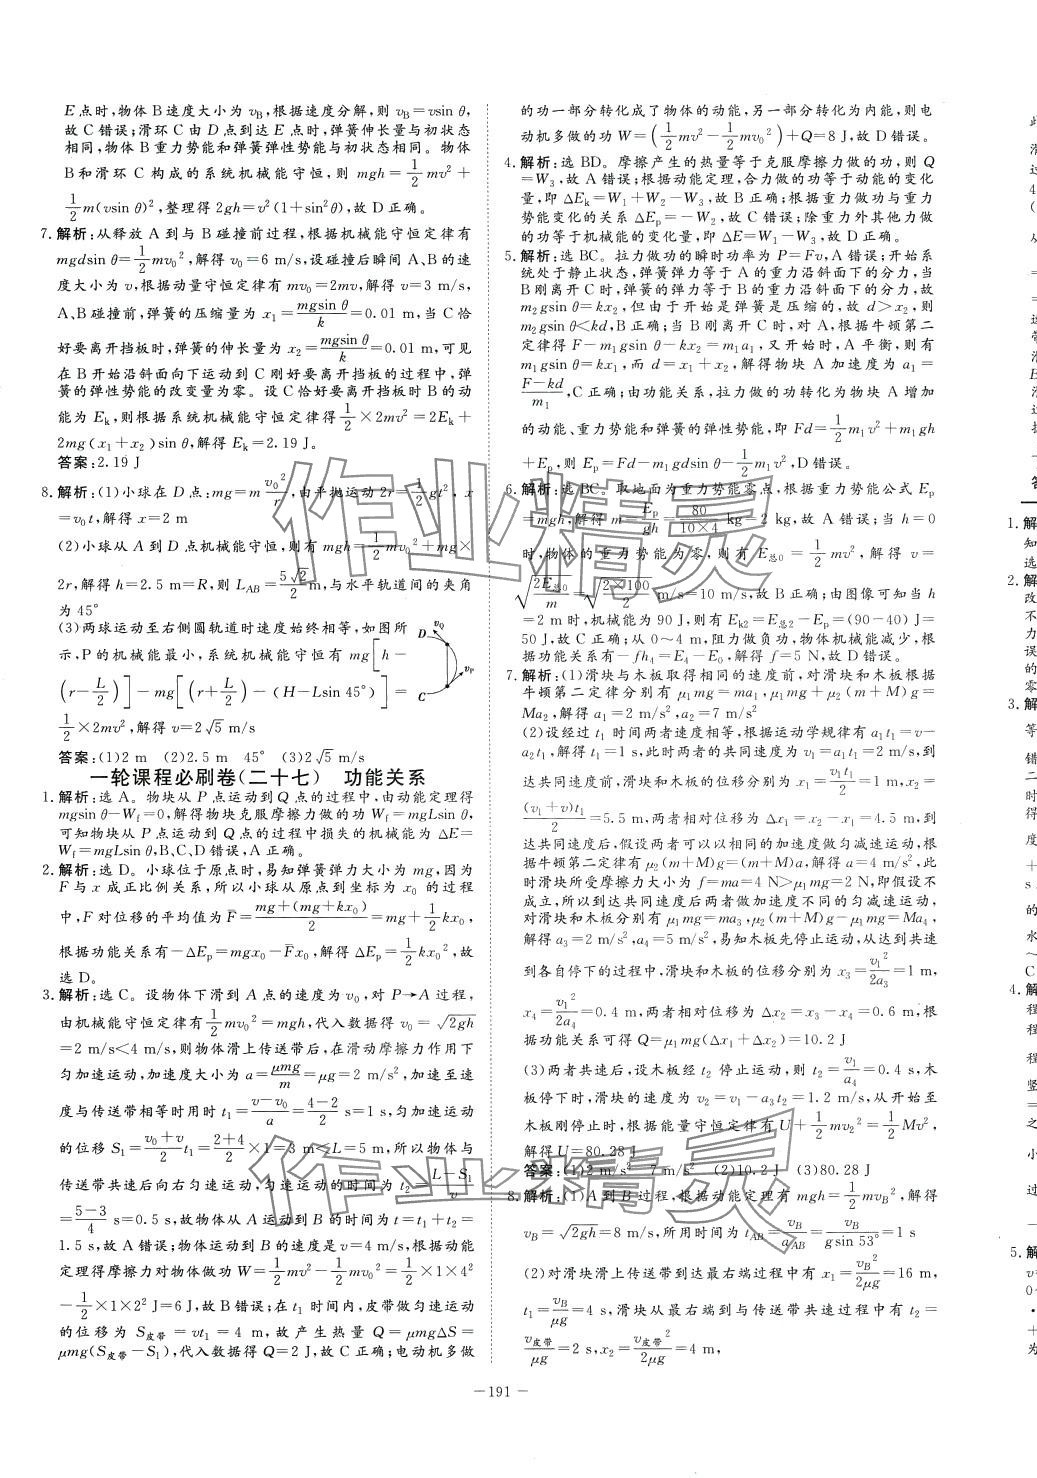 E点时,物体B速度大小为 v_B,根据速度分解,则 v_B=vsin θ,
故C错误;滑环C由D点到达E点时,弹簧伸长量与初状态
相同,物体B重力势能和弹簧弹性势能与初状态相同。物体
B和滑环C构成的系统机械能守恒,则 mgh=1/2 mv²+
1/2 m(vsin θ)²,整理得 2gh=v²(1+sin²θ),故D正确。
7.解析:从释放A到与B碰撞前过程,根据机械能守恒定律有
mgdsin θ=1/2 mv₀²,解得 v₀=6 m/s,设碰撞后瞬间A、B的速
度大小为v,根据动量守恒定律有 mv₀=2mv,解得 v=3 m/s,
A、B碰撞前,弹簧的压缩量为 x₁=mgsin θ/k=0.01 m,当C恰
好要离开挡板时,弹簧的伸长量为 x₂=mgsin θ/k=0.01 m,可见
在B开始沿斜面向下运动到C刚好要离开挡板的过程中,弹
簧的弹性势能的改变量为零。设C恰好要离开挡板时B的动
能为 E_k,则根据系统机械能守恒定律得 1/2×2mv²=2E_k+
2mg(x₁+x₂)sin θ,解得 E_k=2.19 J。
答案:2.19 J
8.解析:(1)小球在D点:mg=m v₀²/r,由平抛运动 2r=1/2 gt²,x
=v₀t,解得 x=2 m
(2)小球从A到D点机械能守恒,则有 mgh=1/2 mv₀²+mg×
2r,解得 h=2.5 m=R,则 L_AB=5√2/2 m,与水平轨道间的夹角
为 45°
(3)两球运动至右侧圆轨道时速度始终相等,如图所
示,P的机械能最小,系统机械能守恒有 mg[h-
(r-L/2)]-mg[(r+L/2)-(H-Lsin 45°)]=
1/2×2mv²,解得 v=2√5 m/s
D v_Q
v_P
C
答案:(1)2 m (2)2.5 m 45° (3)2√5 m/s
一轮课程必刷卷(二十七) 功能关系
1.解析:选A。物块从P点运动到Q点的过程中,由动能定理得
mgsin θ-W_f=0,解得物块克服摩擦力做的功 W_f=mgLsin θ,
可知物块从P点运动到Q点的过程中损失的机械能为 ΔE=
W_f=mgLsin θ,B、C、D错误,A正确。
2.解析:选D。小球位于原点时,易知弹簧弹力大小为 mg,因为
F与x成正比例关系,所以小球从原点到坐标为 x₀ 的过程
中,F对位移的平均值为 F̄=mg+(mg+kx₀)/2=mg+1/2 kx₀,
根据功能关系有-ΔE_p=mgx₀-F̄x₀,解得 ΔE_p=1/2 kx₀²,故
选D。
3.解析:选C。设物体下滑到A点的速度为 v₀,对P→A过程,
由机械能守恒定律有 1/2 mv₀²=mgh,代入数据得 v₀=√2gh
=2 m/s<4 m/s,则物体滑上传送带后,在滑动摩擦力作用下
匀加速运动,加速度大小为 a=μmg/m=μg=2 m/s²,加速至速
度与传送带相等时用时 t₁=v-v₀/a=4-2/2 s=1 s,匀加速运动
的位移 S₁=v₀+v/2 t₁=2+4/2×1=3 m<L=5 m,所以物体与
传送带共速后向右匀速运动,匀速运动的时间为 t₂=L-S₁/v
=5-3/4 s=0.5 s,故物体从A运动到B的时间为 t=t₁+t₂=
1.5 s,故A错误;物体运动到B的速度是 v=4 m/s,根据动能
定理得摩擦力对物体做功 W=1/2 mv²-1/2 mv₀²=1/2×1×4²
-1/2×1×2² J=6 J,故B错误;在 t₁ 时间内,皮带做匀速运动
的位移为 S皮带=vt₁=4 m,故产生热量 Q=μmgΔS=
μmg(S皮带-S₁),代入数据得 Q=2 J,故C正确;电动机多做
的功一部分转化成了物体的动能,另一部分转化为内能,则电
动机多做的功 W=(1/2 mv²-1/2 mv₀²)+Q=8 J,故D错误。
4.解析:选BD。摩擦产生的热量等于克服摩擦力做的功,则 Q
=W₃,故A错误;根据动能定理,合力做的功等于动能的变化
量,即 ΔE_k=W₁+W₂-W₃,故B正确;根据重力做功与重力
势能变化的关系 ΔE_p=-W₂,故C错误;除重力外其他力做
的功等于机械能的变化量,即 ΔE=W₁-W₃,故D正确。
5.解析:选BC。拉力做功的瞬时功率为 P=Fv,A错误;开始系
统处于静止状态,弹簧弹力等于A的重力沿斜面下的分力,当
B刚离开C时,弹簧的弹力等于B的重力沿斜面下的分力,故
m₂gsin θ=kx₂,但由于开始是弹簧是压缩的,故 d>x₂,则
m₂gsin θ<kd,B正确;当B刚离开C时,对A,根据牛顿第二
定律得 F-m₁gsin θ-kx₂=m₁a₁,又开始时,A平衡,则有
m₁gsin θ=kx₁,而 d=x₁+x₂,解得物块A加速度为 a₁=
F-kd/m₁,C正确;由功能关系,拉力做的功转化为物块A增加
的动能、重力势能和弹簧的弹性势能,即 Fd=1/2 m₁v²+m₁gh
+E_p,则 E_p=Fd-m₁gdsin θ-1/2 m₁v²,D错误。
6.解析:选BC。取地面为重力势能零点,根据重力势能公式 E_p
=mgh,解得 m=E_p/gh=80/10×4 kg=2 kg,故A错误;当 h=0
时,物体的重力势能为零,则有 E总0=1/2 mv²,解得 v=
√2E总0/m=√2×100/2 m/s=10 m/s,故B正确;由图像可知当 h
=2 m时,机械能为 90 J,则有 E_k2=E总2-E_p=(90-40) J=
50 J,故C正确;从 0~4 m,阻力做负功,物体机械能减少,根
据功能关系有-fh₄=E₄-E₀,解得 f=5 N,故D错误。
7.解析:(1)滑块与木板取得相同的速度前,对滑块和木板根据
牛顿第二定律分别有 μ₁mg=ma₁,μ₁mg+μ₂(m+M)g=
Ma₂,解得 a₁=2 m/s²,a₂=7 m/s²
(2)设经过 t₁ 时间两者速度相等,根据运动学规律有 a₁t₁=v-
a₂t₁,解得 t₁=1 s,此时两者的共同速度为 v₁=a₁t₁=2 m/s,到
达共同速度前,滑块和木板的位移分别为 x₁=v₁t₁/2=1 m,x₂=
(v₁+v)t₁/2=5.5 m,两者相对位移为 Δx₁=x₂-x₁=4.5 m,到
达共同速度后,假设两者可以以相同的加速度做匀减速运动,根
据牛顿第二定律有 μ₂(m+M)g=(m+M)a,解得 a=4 m/s²,此
时滑块所受摩擦力大小为 f=ma=4 N>μ₁mg=2 N,即假设不
成立,所以到达共同速度后两者做加速度不同的匀减速运动,
对滑块和木板分别有 μ₁mg=ma₃,μ₂(m+M)g-μ₁mg=Ma₄,
解得 a₃=2 m/s²,a₄=5 m/s²,易知木板先停止运动,从达到共速
到各自停下的过程中,滑块和木板的位移分别为 x₃=v₁²/2a₃=1 m,
x₄=v₁²/2a₄=0.4 m,两者相对位移为 Δx₂=x₃-x₄=0.6 m,根
据功能关系可得 Q=μ₁mg(Δx₁+Δx₂)=10.2 J
(3)两者共速后,设木板经 t₂ 停止运动,则 t₂=v₁/a₄=0.4 s,木
板停下时,滑块的速度为 v₂=v₁-a₃t₂=1.2 m/s,从开始至
木板刚停止时,根据能量守恒定律有 U+1/2 mv₂²=1/2 Mv²,
解得 U=80.28 J
答案:(1)2 m/s² 7 m/s² (2)10.2 J (3)80.28 J
8.解析:(1)A到B过程,根据动能定理有 mgh=1/2 mv_B²,解得
v_B=√2gh=8 m/s,所用时间为 t_AB=v_B/a_AB=v_B/gsin 53°=1 s
(2)对滑块滑上传送带到达最右端过程中有 x₁=v_B²/2μg=16 m,
t₁=v_B/μg=4 s,滑块从最右端到与传送带共速过程中有 t₂=
v皮带/μg=2 s,x₂=v皮带²/2μg=4 m,
-191-
作业精灵
作业精灵